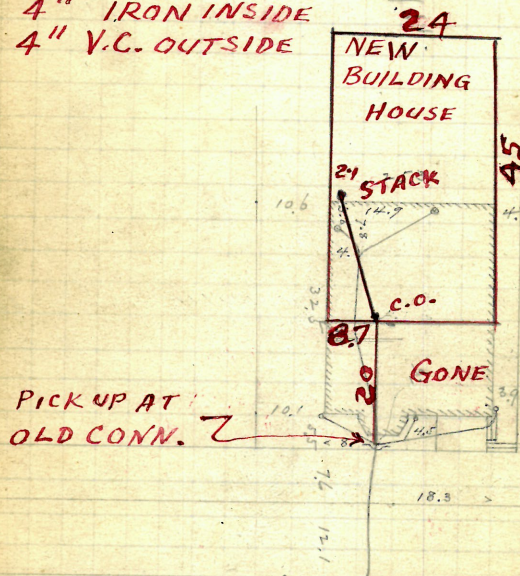 4" IRON INSIDE
4" V.C. OUTSIDE
24
NEW
BUILDING
HOUSE
45
21
STACK
10.6
14.9
7.8
4.
32.
C.O.
8.7
20
GONE
PICK UP AT
OLD CONN.
10.1
3.9
4.5
5.5
8
7.6
18.3
12.1